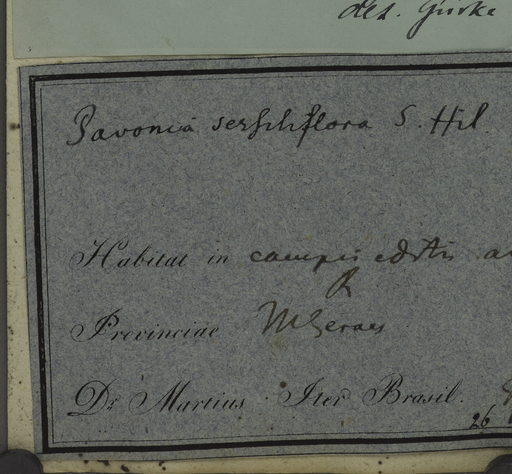 det. Gürke
Pavonia sessiliflora S. Hil.
Habitat in campis editis
Provinciae MGeraes
Dr Martius Iter Brasil.
26